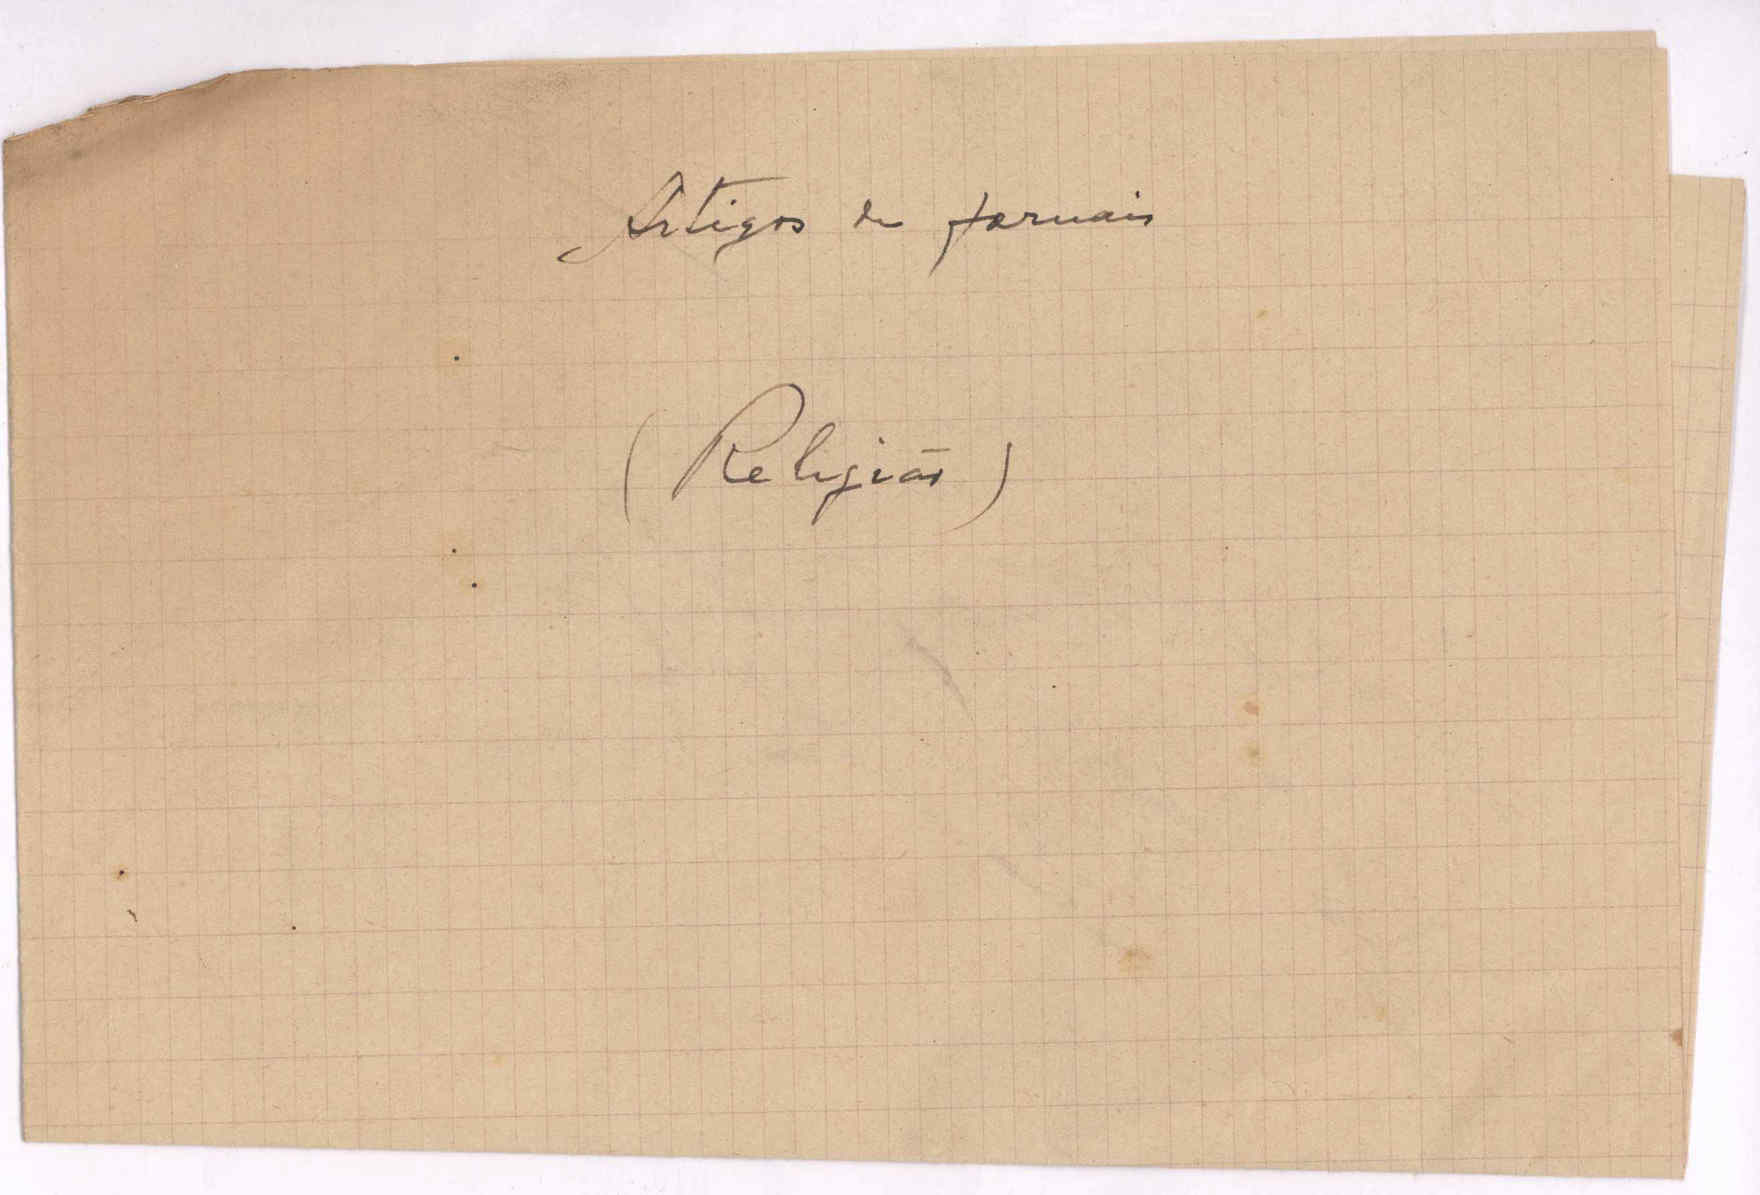 Artigos de jornais
(Religião)